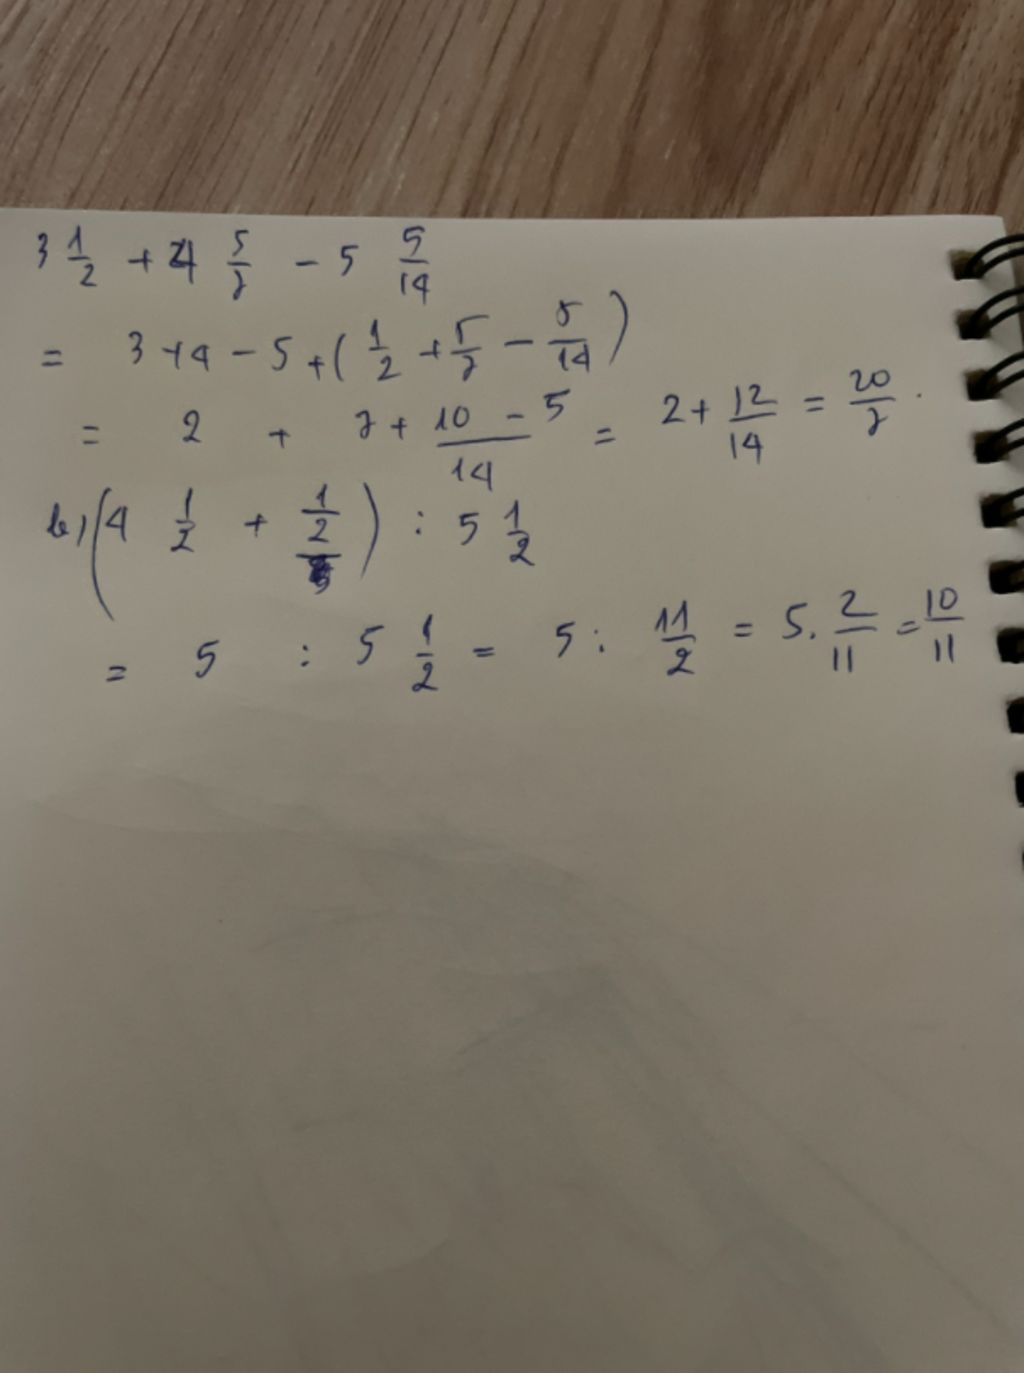 3 1/2 + 4 5/7 - 5 5/14
= 3 + 4 - 5 + ( 1/2 + 5/7 - 5/14 )
= 2 + (7 + 10 - 5)/14 = 2 + 12/14 = 20/7 .
b) ( 4 1/2 + 1/2 ) : 5 1/2
= 5 : 5 1/2 = 5 : 11/2 = 5 . 2/11 = 10/11